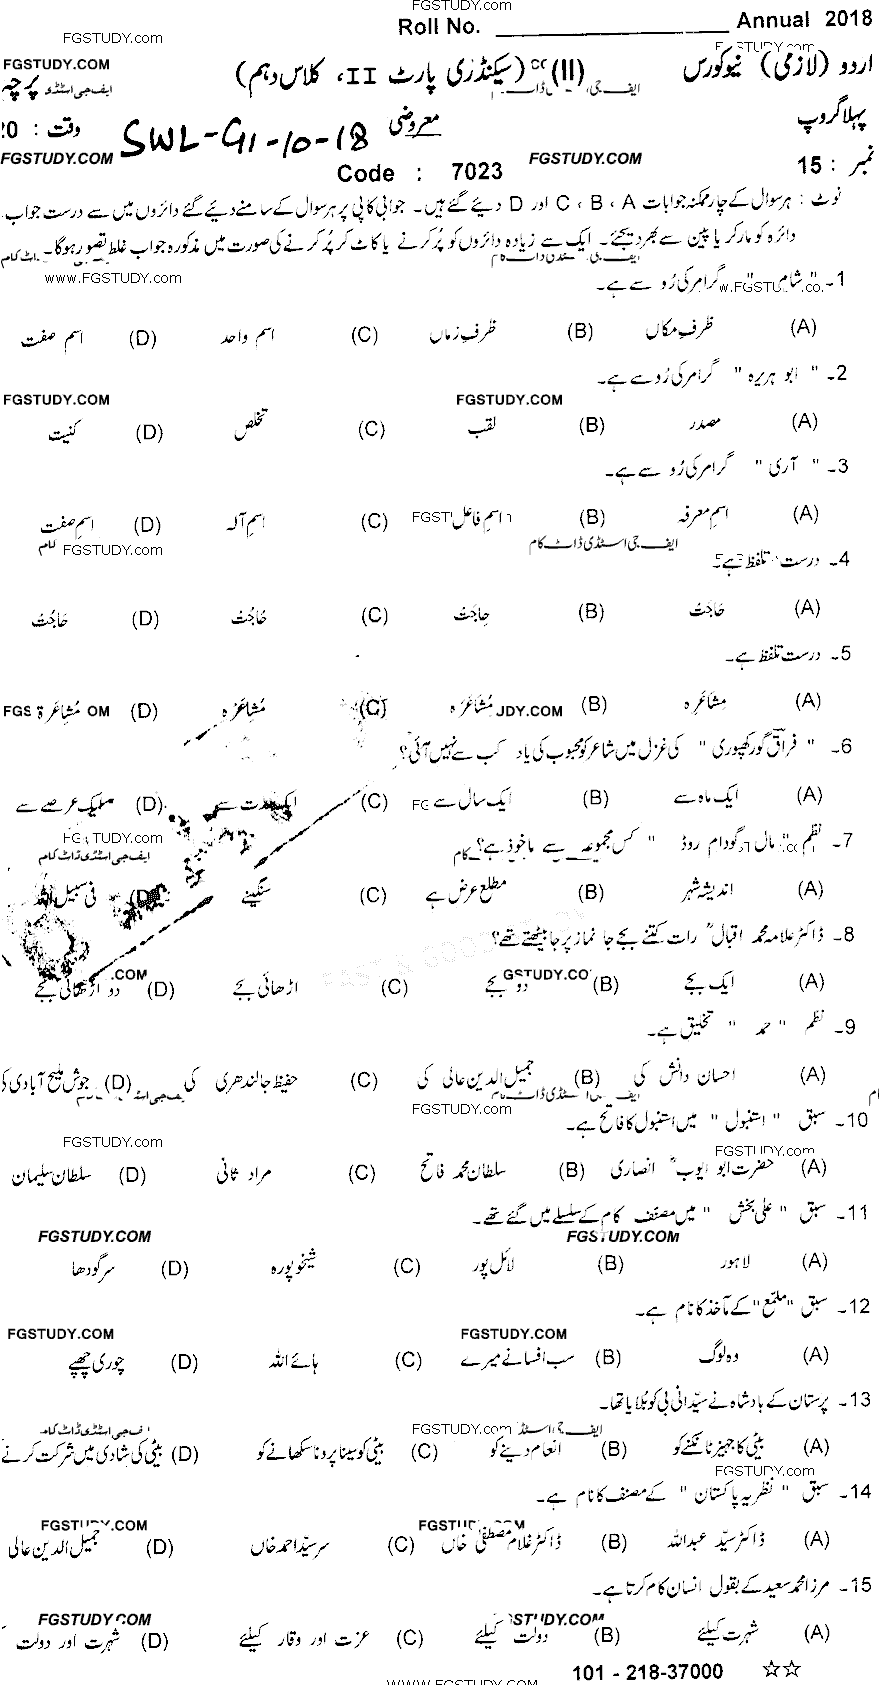 FGSTUDY.com
Roll No. ____________ Annual 2018
FGSTUDY.com
اردو (لازمی) نیوکورس (II) (سیکنڈری پارٹ II، کلاس دہم) پرچہ
FGSTUDY.COM
پہلا گروپ معروضی وقت : 20
SWL-G1-10-18
نمبر : 15 Code : 7023
FGSTUDY.COM FGSTUDY.COM
نوٹ : ہر سوال کے چار ممکنہ جوابات A ، B ، C اور D دیئے گئے ہیں۔ جوابی کاپی پر ہر سوال کے سامنے دیئے گئے دائروں میں سے درست جواب
دائرہ کو مارکر یا پین سے بھر دیجئے۔ ایک سے زیادہ دائروں کو پُر کرنے یا کاٹ کر پُر کرنے کی صورت میں مذکورہ جواب غلط تصور ہوگا۔
www.FGSTUDY.COM
1۔ " شام " گرامر کی رُو سے ہے۔
(A) ظرفِ مکاں (B) ظرفِ زماں (C) اسم واحد (D) اسم صفت
2۔ " ابو ہریرہ " گرامر کی رُو سے ہے۔
FGSTUDY.COM FGSTUDY.COM
(A) مصدر (B) لقب (C) تخلص (D) کنیت
3۔ " آری " گرامر کی رُو سے ہے۔
(A) اسم معرفہ (B) اسم فاعل (C) اسمِ آلہ (D) اسمِ صفت
FGSTUDY.com ایف جی اسٹڈی ڈاٹ کام
4۔ درست تلفظ ہے۔
(A) حَاجَتْ (B) حِاجَتْ (C) حُاجُتْ (D) حَاجُتْ
5۔ درست تلفظ ہے۔
(A) مشَاعَرِہ (B) مُشَاعَرَہ (C) مُشاعرَہ (D) مُشِاعَرَۃ
6۔ " فراقؔ گورکھپوری " کی غزل میں شاعر کو محبوب کی یاد کب سے نہیں آئی؟
(A) ایک ماہ سے (B) ایک سال سے (C) ایک مدت سے (D) ایک عرصے سے
7۔ نظم " مال گودام روڈ " کس مجموعہ سے ماخوذ ہے؟
(A) اندیشہ شہر (B) مطلع عرض ہے (C) سنگینے (D) فی سبیل اللہ
8۔ ڈاکٹر علامہ محمد اقبالؒ رات کتنے بجے جا نماز پر جا بیٹھتے تھے؟
(A) ایک بجے (B) دو بجے (C) اڑھائی بجے (D) دو اڑھائی بجے
9۔ نظم " حمد " تخلیق ہے۔
(A) احسان دانش کی (B) جمیل الدین عالی کی (C) حفیظ جالندھری کی (D) جوش ملیح آبادی کی
FGSTUDY.com
10۔ سبق " استنبول " میں استنبول کا فاتح ہے۔
FGSTUDY.com FGSTUDY.com
(A) حضرت ابو ایوبؓ انصاری (B) سلطان محمد فاتح (C) مراد ثانی (D) سلطان سلیمان
11۔ سبق " علی بخش " میں مصنف کام کے سلسلے میں گئے تھے۔
FGSTUDY.COM FGSTUDY.COM
(A) لاہور (B) لائل پور (C) شیخوپورہ (D) سرگودھا
12۔ سبق "ملمّع" کے مآخذ کا نام ہے۔
FGSTUDY.COM FGSTUDY.COM
(A) وہ لوگ (B) سب افسانے میرے (C) ہائے اللہ (D) چوری چھپے
13۔ پرستان کے بادشاہ نے سیّدانی بی کو بُلایا تھا۔
FGSTUDY.com
(A) بیٹی کا جہیز ٹانکنے کو (B) انعام دینے کو (C) بیٹی کو سینا پرونا سکھانے کو (D) بیٹی کی شادی میں شرکت کرنے
FGSTUDY.com
14۔ سبق " نظریہ پاکستان " کے مصنف کا نام ہے۔
FGSTUDY.COM FGSTUDY.COM
(A) ڈاکٹر سیّد عبداللہ (B) ڈاکٹر غلام مصطفیٰ خاں (C) سر سیّد احمد خاں (D) جمیل الدین عالی
15۔ مرزا محمد سعید کے بقول انسان کام کرتا ہے۔
FGSTUDY.COM FGSTUDY.COM
(A) شہرت کیلئے (B) دولت کیلئے (C) عزت اور وقار کیلئے (D) شہرت اور دولت
101 - 218-37000 ☆☆
WWW.FGSTUDY.COM